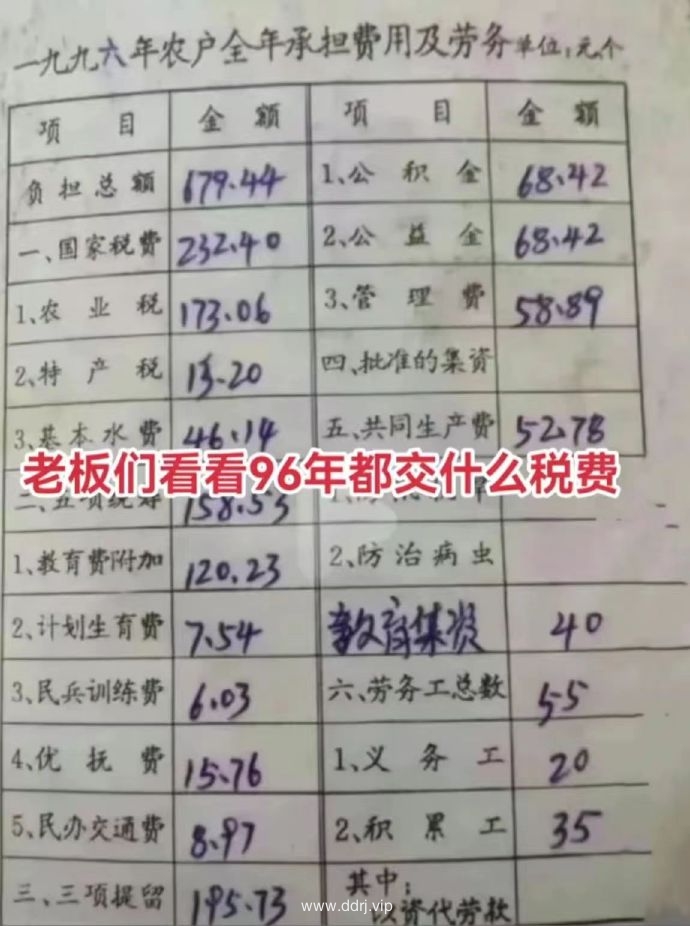 一九九六年农户全年承担费用及劳务 单位:元、个
项 目 金 额 项 目 金 额
负担总额 679.44 1、公积金 68.42
一、国家税费 232.40 2、公益金 68.42
1、农业税 173.06 3、管理费 58.89
2、特产税 13.20 四、批准的集资
3、基本水费 46.14 五、共同生产费 52.78
老板们看看96年都交什么税费
二、五项统筹 158.53
1、教育费附加 120.23 2、防治病虫
2、计划生育费 7.54 教育集资 40
3、民兵训练费 6.03 六、劳务工总数 55
4、优抚费 15.76 1、义务工 20
5、民办交通费 8.97 2、积累工 35
三、三项提留 195.73 其中:
以资代劳款
www.ddrj.vip